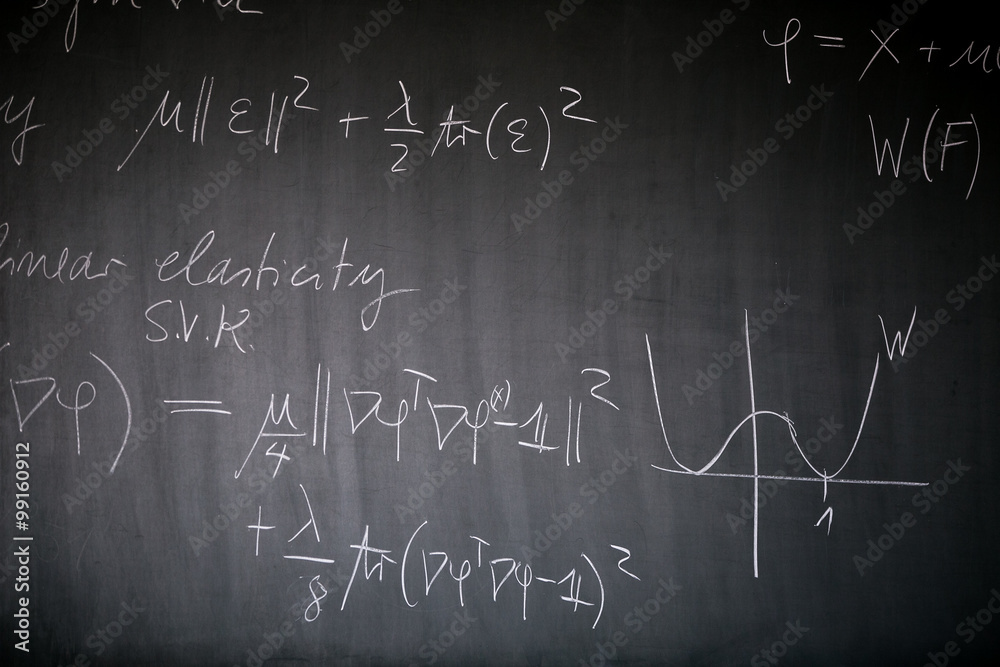 φ = x + u
μ‖ε‖² + λ/2 tr(ε)²
W(F)
linear elasticity
S.V.K.
∇φ) = μ/4 ‖∇φᵀ∇φ⁽ˣ⁾-𝟙‖²
W
1
+ λ/8 tr(∇φᵀ∇φ-𝟙)²
Adobe Stock | #99160912